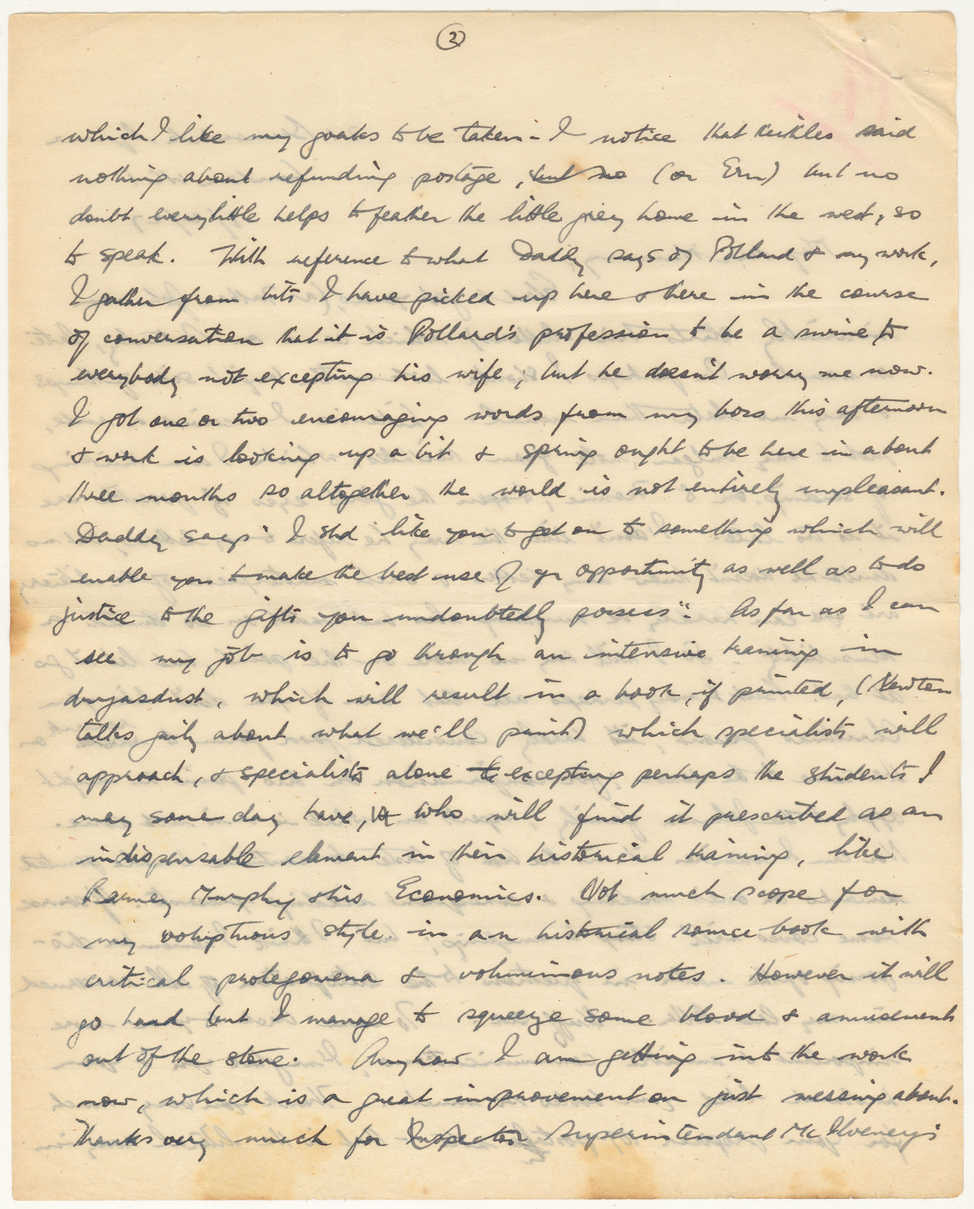 ②
which I like my goats to be taken - I notice that Keikles said
nothing about refunding postage, but no (or Ern) but no
doubt every little helps to feather the little grey home in the west, so
to speak. With reference to what Daddy says of Pollard & my work,
I gather from bits I have picked up here & there in the course
of conversation that it is Pollard's profession to be a swine to
everybody not excepting his wife; but he doesn't worry me now.
I got one or two encouraging words from my boss this afternoon
& work is looking up a bit & spring ought to be here in about
three months so altogether the world is not entirely unpleasant.
Daddy says "I shd like you to get on to something which will
enable you to make the best use of yr opportunity as well as to do
justice to the gifts you undoubtedly possess". As far as I can
see my job is to go through an intensive training in
dryasdust, which will result in a book, if printed, (Newton
talks jaily about what we'll print) which specialists will
approach, & specialists alone excepting perhaps the students I
may some day have, who will find it prescribed as an
indispensable element in their historical training, like
Barney Murphy & his Economics. Not much scope for
my voluptuous style in an historical source-book with
critical prolegomena & voluminous notes. However it will
go hard but I manage to squeeze some blood & amusement
out of the stone. Anyhow I am getting into the work
now, which is a great improvement on just messing about.
Thanks very much for Inspector Superintendant McIlveney's